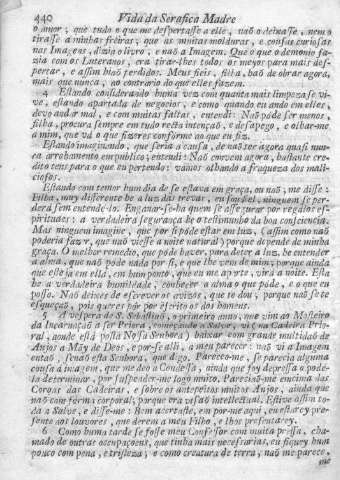 440 Vida da Serafica Madre
o amor; que tudo o que me despertasse a elle, naõ o deixasse, nem o
tirasse a minhas freiras; que as muitas molduras, e cousas curiosas
nas Imagens, dizia o livro, e naõ a Imagem. Que o que o demonio fa-
zia com os Luteranos, era tirar-lhes todos os meyos para mais des-
pertar, e assim hiaõ perdidos. Meus fieis, filha, haõ de obrar agora,
mais que nunca, ao contrario do que elles fazem.
4 Estando considerando huma vez com quanta mais limpeza se vi-
ve, estando apartada de negocios, e como quando eu ando em elles,
devo andar mal, e com muitas faltas, entendi: Naõ póde ser menos,
filha, procura sempre em tudo recta intençaõ, e desapego, e olhar-me
a mim, que vá o que fizeres conforme ao que eu fiz.
Estando imaginando, que seria a causa, de naõ ter agora quasi nun-
ca arrobamento em publico; entendi: Naõ convem agora, bastante cre-
dito tens para o que eu pertendo: vamos olhando a fraqueza dos mali-
ciosos.
Estando com temor hum dia de se estava em graça, ou naõ, me disse:
Filha, muy differente he a luz das trevas, eu sou fiel, ninguem se per-
derá sem entendello. Enganar-se-ha quem se assegurar por regalos es-
pirituaes: a verdadeira segurança he o testimunho da boa consciencia.
Mas ninguem imagine, que por si póde estar em luz, (assim como naõ
poderia fazer, que naõ viesse a noite natural) porque depende de minha
graça. O melhor remedio, que póde haver, para deter a luz, he entender
a alma, que naõ póde nada por si, e que lhe vem de mim; porque ainda
que esteja em ella, em hum ponto, que eu me aparte, virá a noite. Esta
he a verdadeira humildade, conhecer a alma o que póde, e o que eu
posso. Naõ deixes de escrever os avisos, que te dou, porque naõ se te
esqueçaõ, pois queres pôr por escrito os dos homens.
5 A vespera de S. Sebastiaõ, o primeiro anno, que vim ao Mosteiro
da Incarnaçaõ a ser Priora, começando a Salve, vi (na Cadeira Prio-
ral, aonde está posta Nossa Senhora) baixar com grande multidaõ de
Anjos a Mãy de Deos, e pôr-se alli, a meu parecer: naõ vi a Imagem
entaõ, senaõ esta Senhora, que digo. Pareceo-me, se parecia alguma
cousa á imagem, que me deo a Condessa, ainda que foy depressa o pode-
la determinar, por suspender-me logo muito. Pareciaõ-me encima das
Coroas das Cadeiras, e sobre os antepeitos muitos Anjos, ainda que
naõ com fórma corporal; porque era visaõ intellectual. Estive assim to-
da a Salve, e disse-me: Bem acertaste, em por-me aqui, eu estarey pre-
sente aos louvores, que derem a meu Filho, e lhos presentarey.
6 Como huma tarde se fosse meu Confessor com muita pressa, cha-
mado de outras occupaçoens, que tinha mais necessarias, eu fiquey hum
pouco com pena, e tristeza; e como creatura de terra, naõ me parece,